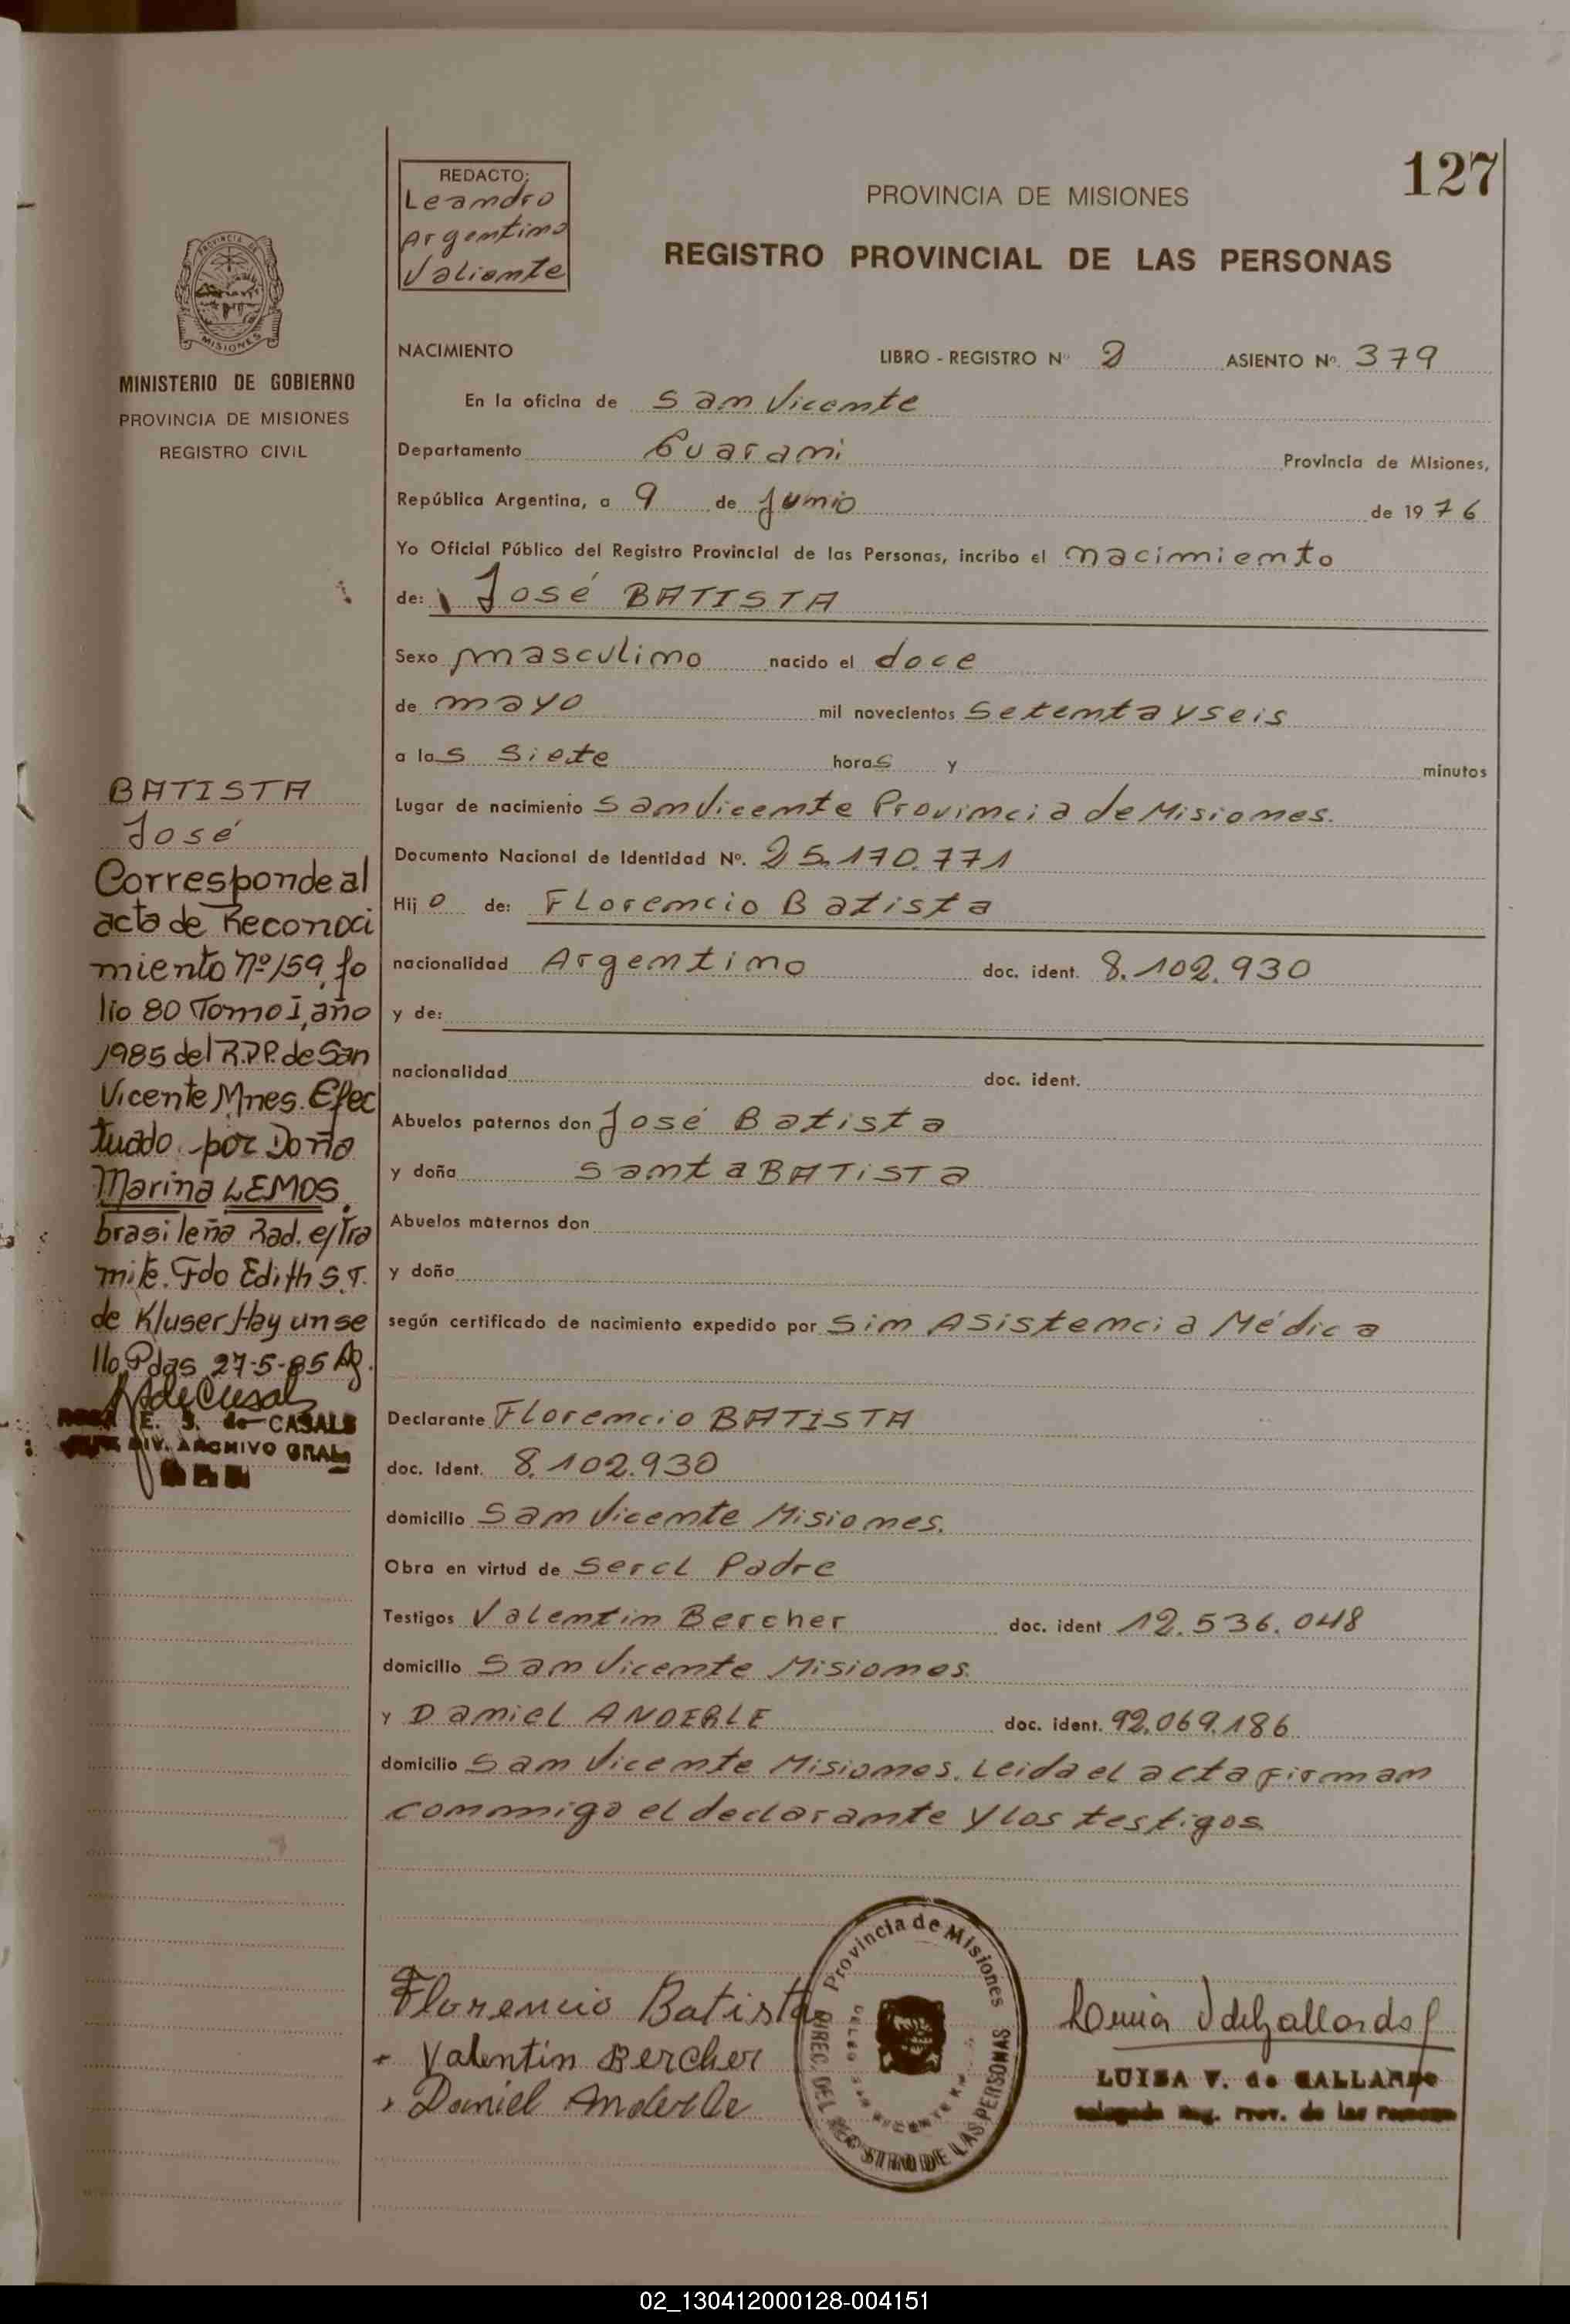 127
REDACTO:
Leandro
Argentino
Valiente
PROVINCIA DE MISIONES
REGISTRO PROVINCIAL DE LAS PERSONAS
PROVINCIA DE
MISIONES
MINISTERIO DE GOBIERNO
PROVINCIA DE MISIONES
REGISTRO CIVIL
NACIMIENTO LIBRO - REGISTRO Nº 2 ASIENTO Nº. 379
En la oficina de San Vicente
Departamento Guarani Provincia de Misiones,
República Argentina, a 9 de Junio de 1976
Yo Oficial Público del Registro Provincial de las Personas, incribo el nacimiento
de: José BATISTA
Sexo masculino nacido el doce
de mayo mil novecientos Setenta y seis
a las siete horas y minutos
Lugar de nacimiento San Vicente Provincia de Misiones.
Documento Nacional de Identidad Nº. 25.170.771
Hijo de: Florencio Batista
nacionalidad Argentino doc. ident. 8.102.930
y de:
nacionalidad doc. ident.
Abuelos paternos don José Batista
y doña Santa BATISTA
Abuelos maternos don
y doña
según certificado de nacimiento expedido por Sin Asistencia Médica
Declarante Florencio BATISTA
doc. Ident. 8.102.930
domicilio San Vicente Misiones.
Obra en virtud de Ser el Padre
Testigos Valentin Bercher doc. ident 12.536.048
domicilio San Vicente Misiones.
y Daniel ANDERLE doc. ident. 92.069.186
domicilio San Vicente Misiones. Leida el acta firman
conmigo el declarante y los testigos
BATISTA
José
Corresponde al
acta de Reconoci
miento Nº 159, fo
lio 80 Tomo I, año
1985 del R.P.P. de San
Vicente Mnes. Efec
tuado por Doña
Marina LEMOS.
brasileña Rad. e/tra
mite. Fdo Edith S.T.
de Kluser Hay un se
llo Pdas 27-5-85 Ag.
E. S. de CASALS
DIV. ARCHIVO GRAL.
Florencio Batista
Valentín Bercher
Daniel Anderle
Provincia de Misiones
DIREC. DEL REGISTRO DE LAS PERSONAS
LUISA V. de GALLARDO
Delegada Reg. Prov. de las Personas
02_130412000128-004151